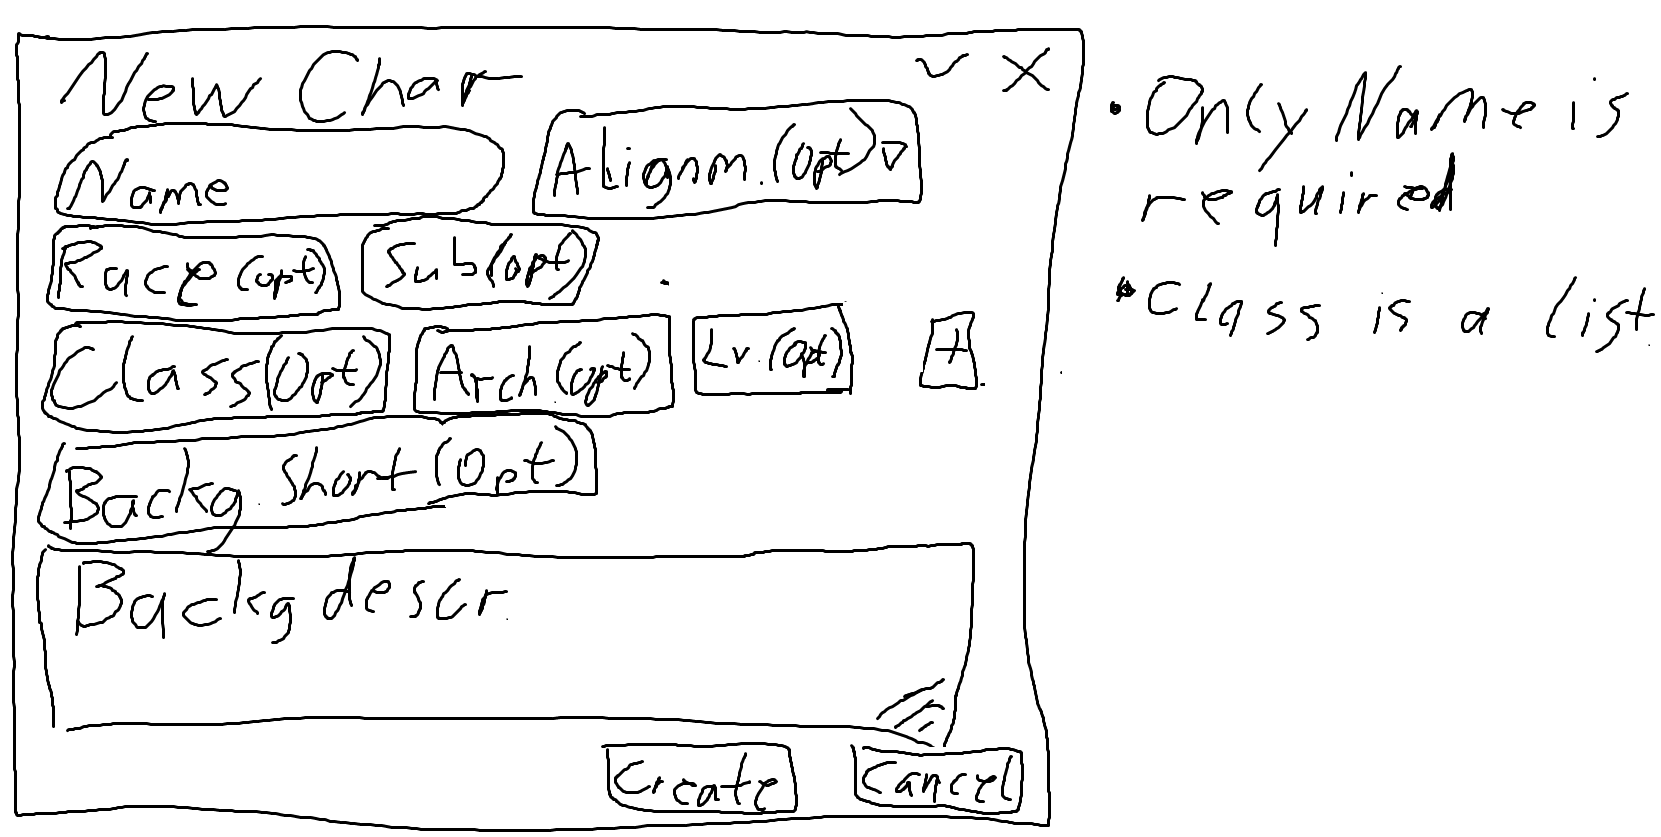 New Char
Name
Alignm. (Opt)
Race (opt)
Sub (opt)
Class (Opt)
Arch (opt)
Lv. (Opt)
+
Backg. Short (Opt)
Backg descr.
Create
Cancel
• Only Name is
required
• Class is a list